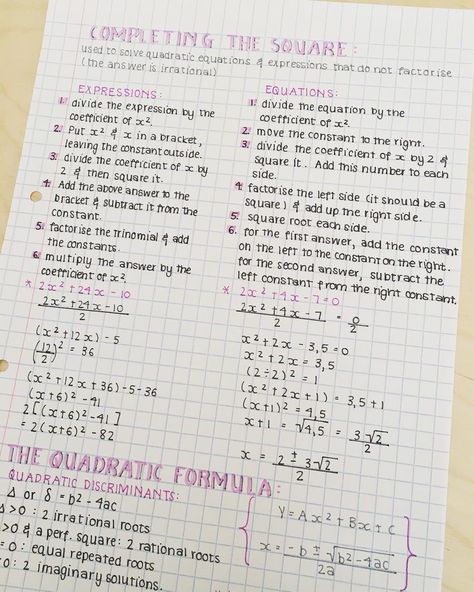 COMPLETING THE SQUARE:
used to solve quadratic equations & expressions that do not factorise
(the answer is irrational)
EXPRESSIONS:
1. divide the expression by the
coefficient of x².
2. Put x² & x in a bracket,
leaving the constant outside.
3. divide the coefficient of x by
2 & then square it.
4. Add the above answer to the
bracket & subtract it from the
constant.
5. factorise the trinomial & add
the constants.
6. multiply the answer by the
coefficient of x².
* 2x² + 24x - 10
2x² + 24x - 10
2
(x² + 12x) - 5
(12/2)² = 36
(x² + 12x + 36) - 5 - 36
(x+6)² - 41
2[(x+6)² - 41]
= 2(x+6)² - 82
EQUATIONS:
1. divide the equation by the
coefficient of x².
2. move the constant to the right.
3. divide the coefficient of x by 2 &
square it. Add this number to each
side.
4. factorise the left side (it should be a
square) & add up the right side.
5. square root each side.
6. for the first answer, add the constant
on the left to the constant on the right.
for the second answer, subtract the
left constant from the right constant.
* 2x² + 4x - 7 = 0
2x² + 4x - 7 = 0
2 2
x² + 2x - 3,5 = 0
x² + 2x = 3,5
(2÷2)² = 1
(x² + 2x + 1) = 3,5 + 1
(x+1)² = 4,5
x+1 = √4,5 = 3√2
2
x = 2 ± 3√2
2
THE QUADRATIC FORMULA:
QUADRATIC DISCRIMINANTS:
Δ or δ = b² - 4ac
Δ > 0 : 2 irrational roots
> 0 & a perf. square: 2 rational roots
= 0 : equal repeated roots
< 0 : 2 imaginary solutions.
y = Ax² + Bx + C
x = -b ± √b² - 4ac
2a